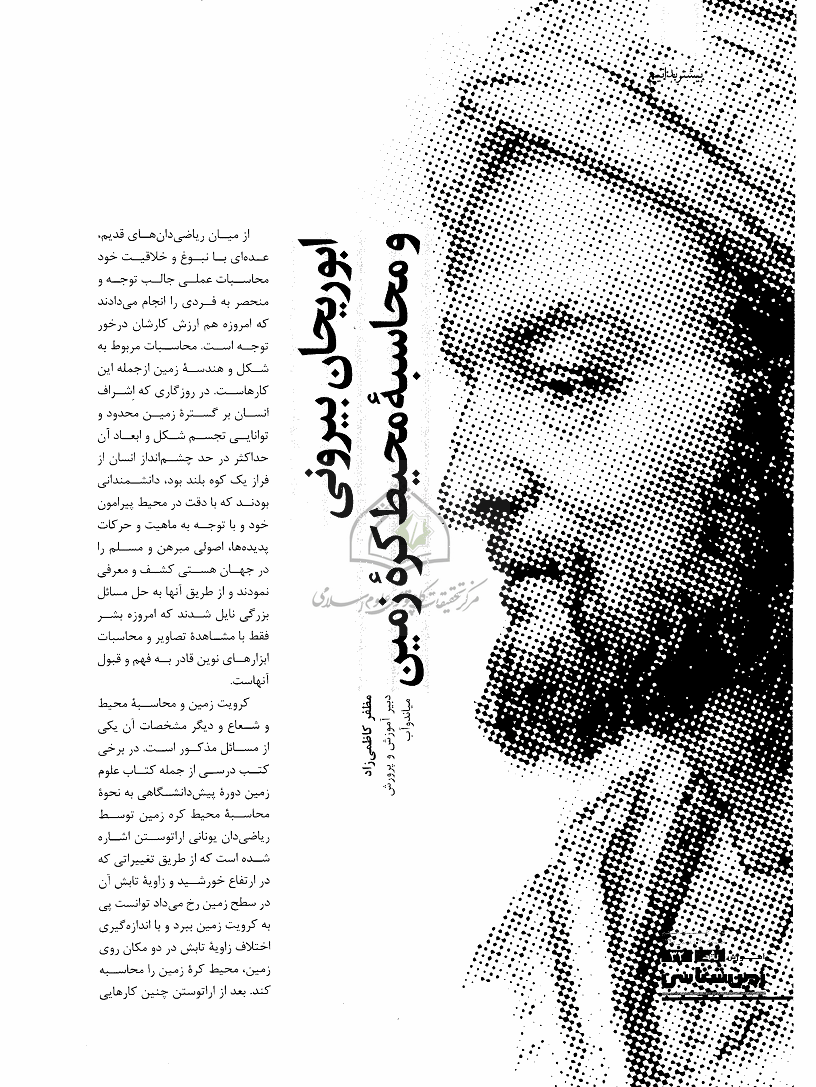 بیشتر بدانیم
ابوریحان بیرونی
و محاسبهٔ محیط کرهٔ زمین
مظفر کاظمی‌زاد
دبیر آموزش و پرورش
میاندوآب
از میـان ریاضی‌دان‌هـای قدیم،
عـده‌ای بـا نبـوغ و خلاقیـت خود
محاسـبات عملـی جالـب توجـه و
منحصر به فـردی را انجام می‌دادند
که امروزه هم ارزش کارشان درخور
توجـه اسـت. محاسـبات مربوط به
شـکل و هندسـهٔ زمین ازجمله این
کارهاسـت. در روزگاری که اِشراف
انسـان بر گسـترهٔ زمیـن محدود و
توانایـی تجسـم شـکل و ابعـاد آن
حداکثر در حد چشـم‌انداز انسان از
فراز یک کوه بلند بود، دانشـمندانی
بودنـد که با دقت در محیط پیرامون
خود و با توجـه به ماهیت و حرکات
پدیده‌ها، اصولی مبرهن و مسـلم را
در جهـان هسـتی کشـف و معرفی
نمودند و از طریق آنها به حل مسائل
بزرگی نایل شـدند که امروزه بشـر
فقط با مشـاهدهٔ تصاویر و محاسبات
ابزارهـای نوین قادر بـه فهم و قبول
آنهاست.
کرویت زمین و محاسـبهٔ محیط
و شـعاع و دیگر مشخصات آن یکی
از مسـائل مذکـور اسـت. در برخی
کتـب درسـی از جمله کتـاب علوم
زمین دورهٔ پیش‌دانشـگاهی به نحوهٔ
محاسـبهٔ محیط کره زمین توسـط
ریاضی‌دان یونانی اراتوسـتن اشـاره
شـده است که از طریق تغییراتی که
در ارتفاع خورشـید و زاویهٔ تابش آن
در سطح زمین رخ می‌داد توانست پی
به کرویت زمین ببرد و با اندازه‌گیری
اختلاف زاویهٔ تابش در دو مکان روی
زمین، محیط کرهٔ زمین را محاسـبه
کند. بعد از اراتوستن چنین کارهایی
مرکز تحقیقات کامپیوتری علوم اسلامی
آموزش
زمین‌شناسی